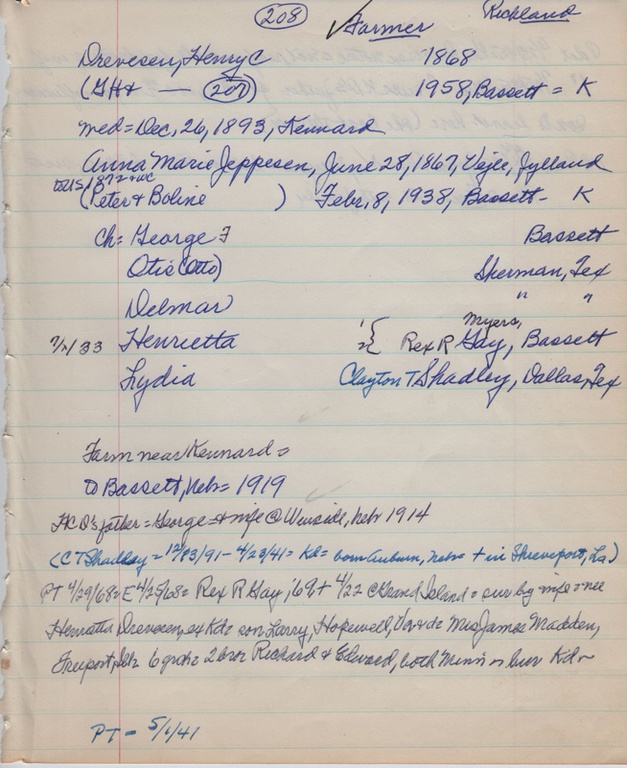 208 ✓ Farmer Richland
Drevesen, Henry C 1868
(GH+ — 207) 1958, Bassett = K
med = Dec, 26, 1893, Kennard
Anna Marie Jeppesen, June 28, 1867, Vejle, Jylland
to US 1872 + WC
(Peter + Boline ) Febr, 8, 1938, Bassett - K
Ch = George F Bassett
Otis (Otto) Sherman, Tex
Delmar " "
Myers,
7/2/33 Henrietta 1/2{ Rex R Gay, Bassett
Lydia Clayton T Shadley, Dallas, Tex
Farm near Kennard =
to Bassett, Nebr = 1919
HCD's father = George = + wife @ Winside, Nebr 1914
(CT Shadley = 12/23/91 - 4/23/41 = Kd = born Auburn, Nebr = + in Shreveport, La)
PT 4/29/68 = E 4/25/68 = Rex R Gay, '69 + 4/22 @ Grand Island = sur by wife = nee
Henrietta Drevesen, ex Kd = son Larry, Hopewell, Va + d = Mrs James Madden,
Freeport, Ill = 6 grch = 2 bros Richard + Edward, both Minn = bur Kd -
PT - 5/1/41